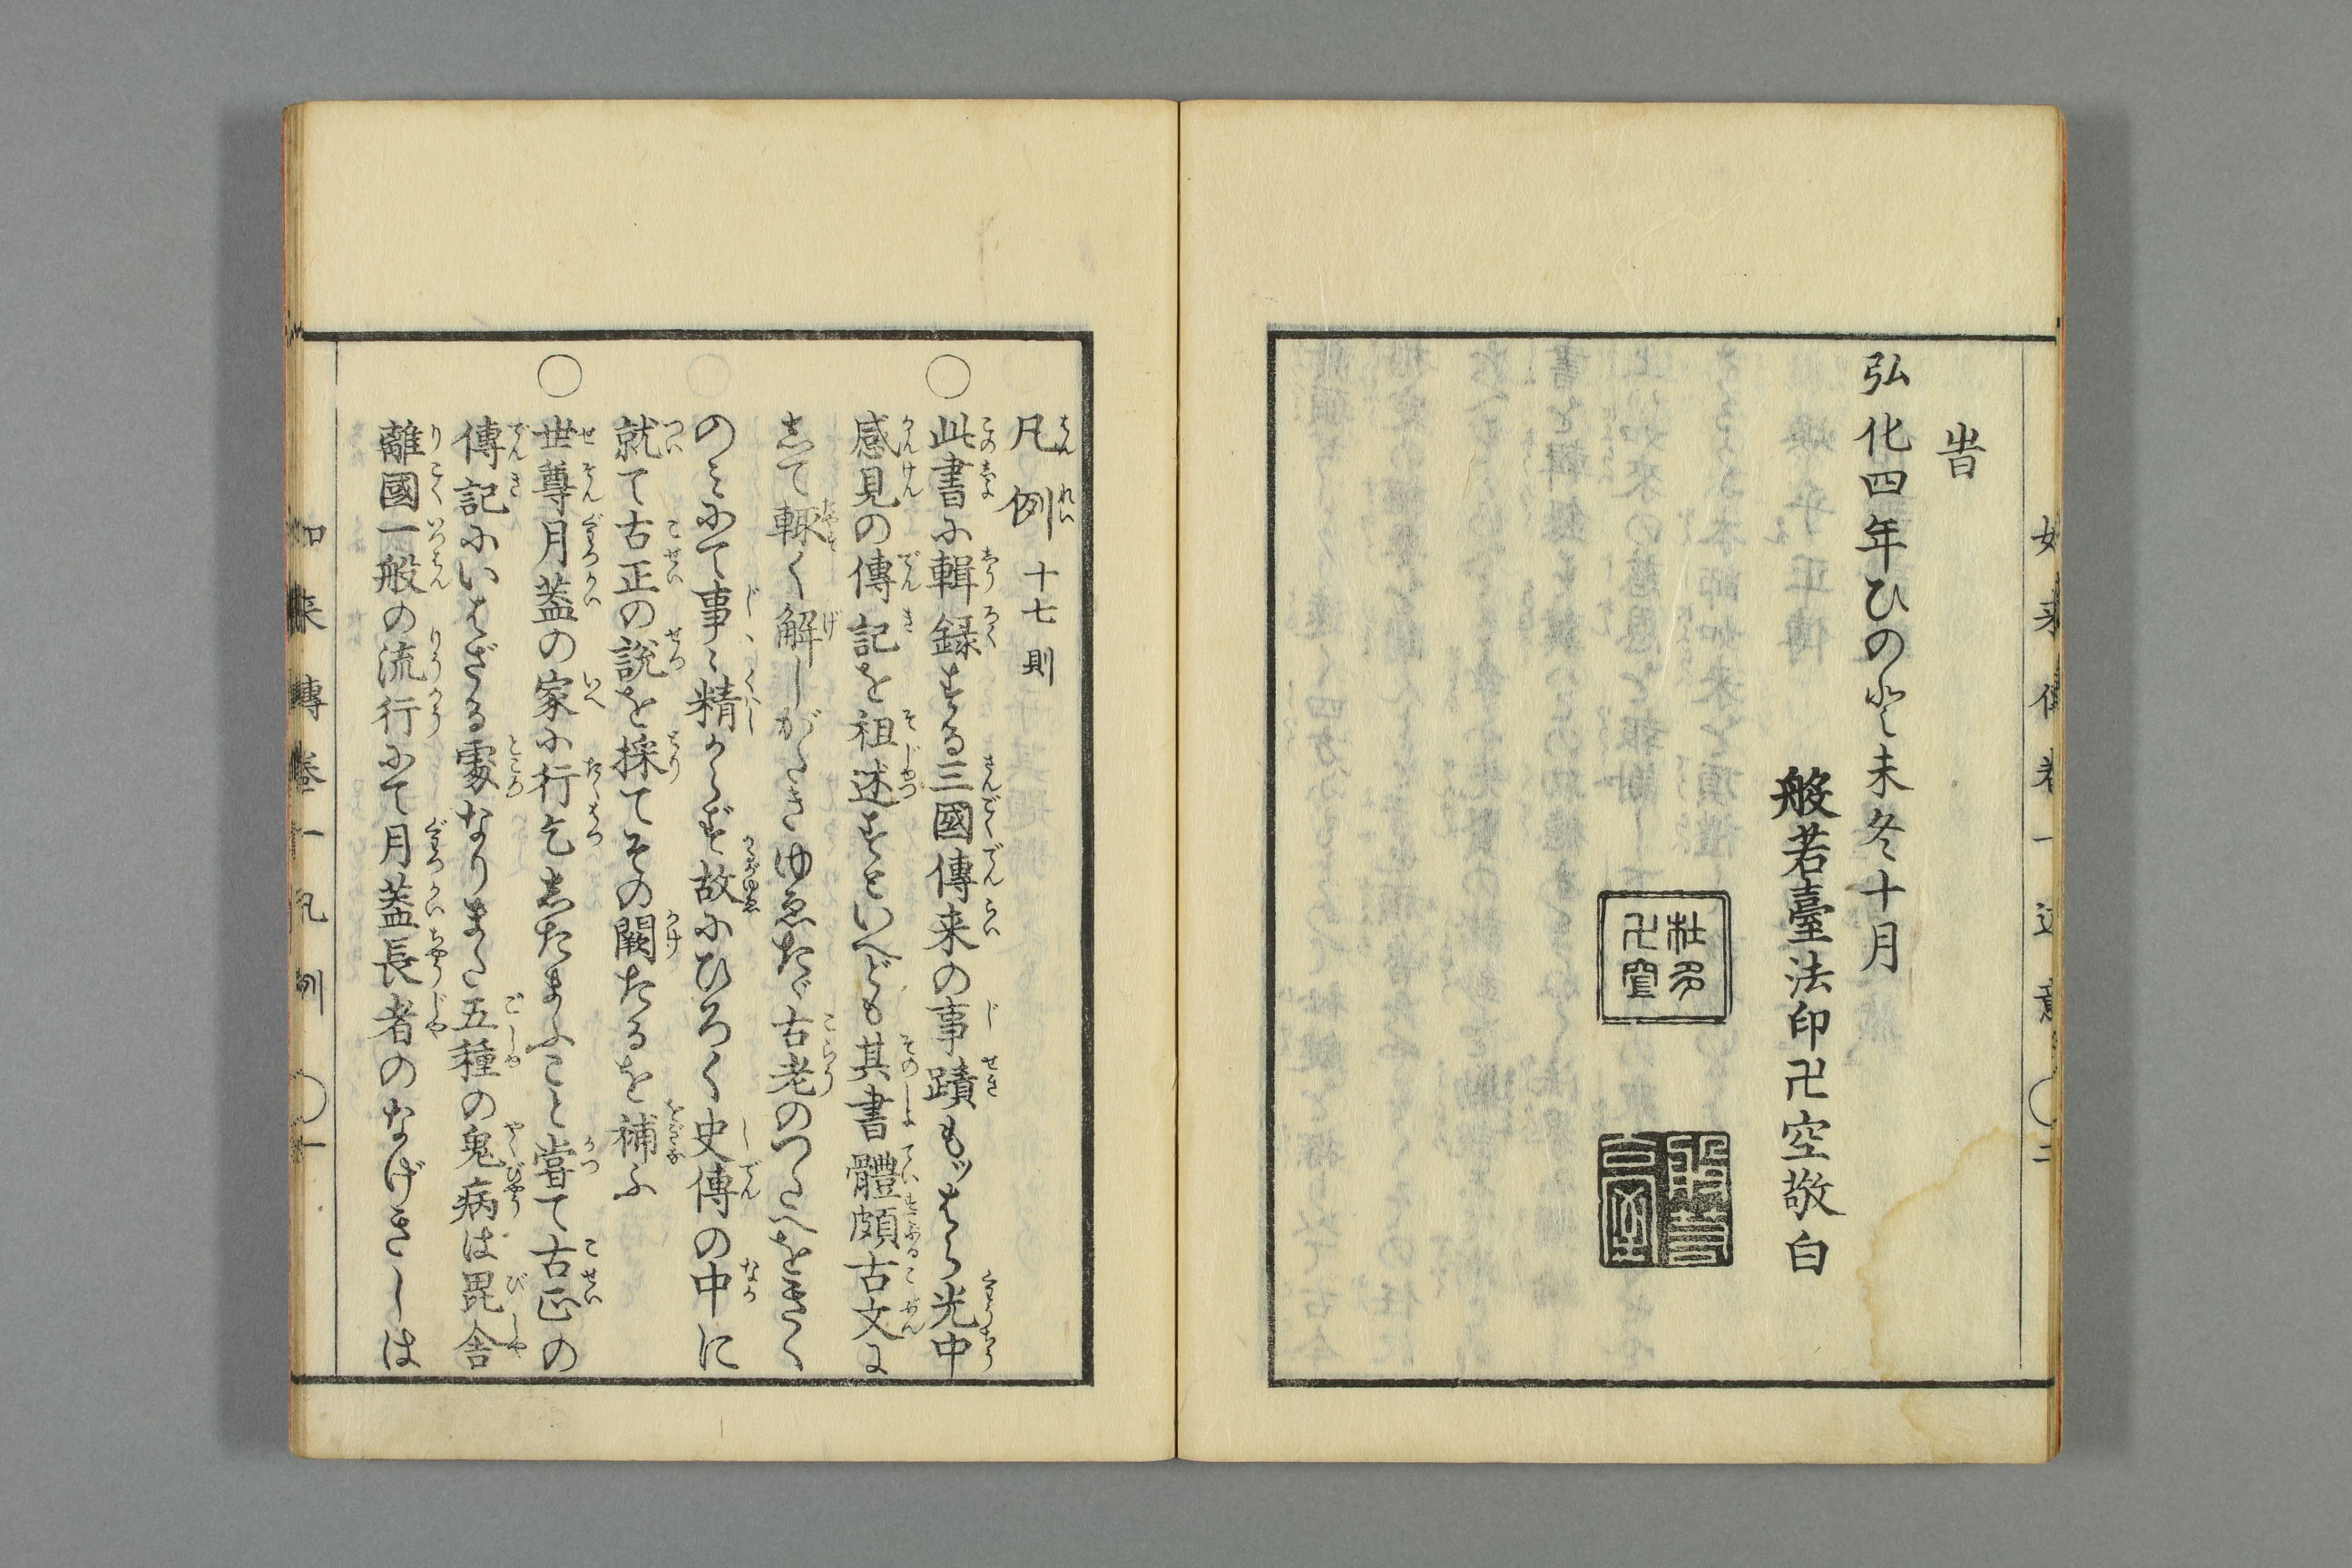 旹
弘化四年ひのと未冬十月
般若臺法印卍空敬白
凡例 十七則
○此書に輯録する三國傳来の事蹟もッはら光中
感見の傳記を祖述すといへども其書體頗古文に
して輙く解しがたきゆゑたゞ古老のつたへをきく
のミにて事〻精からず故にひろく史傳の中に
就て古正の説を採てその闕たるを補ふ
○世尊月蓋の家に行乞したまふこと嘗て古正の
傳記にいはざる處なりまた五種の鬼病は毘舎
離國一般の流行にて月蓋長者のなげきしは
如来傳巻一凡例 ○一